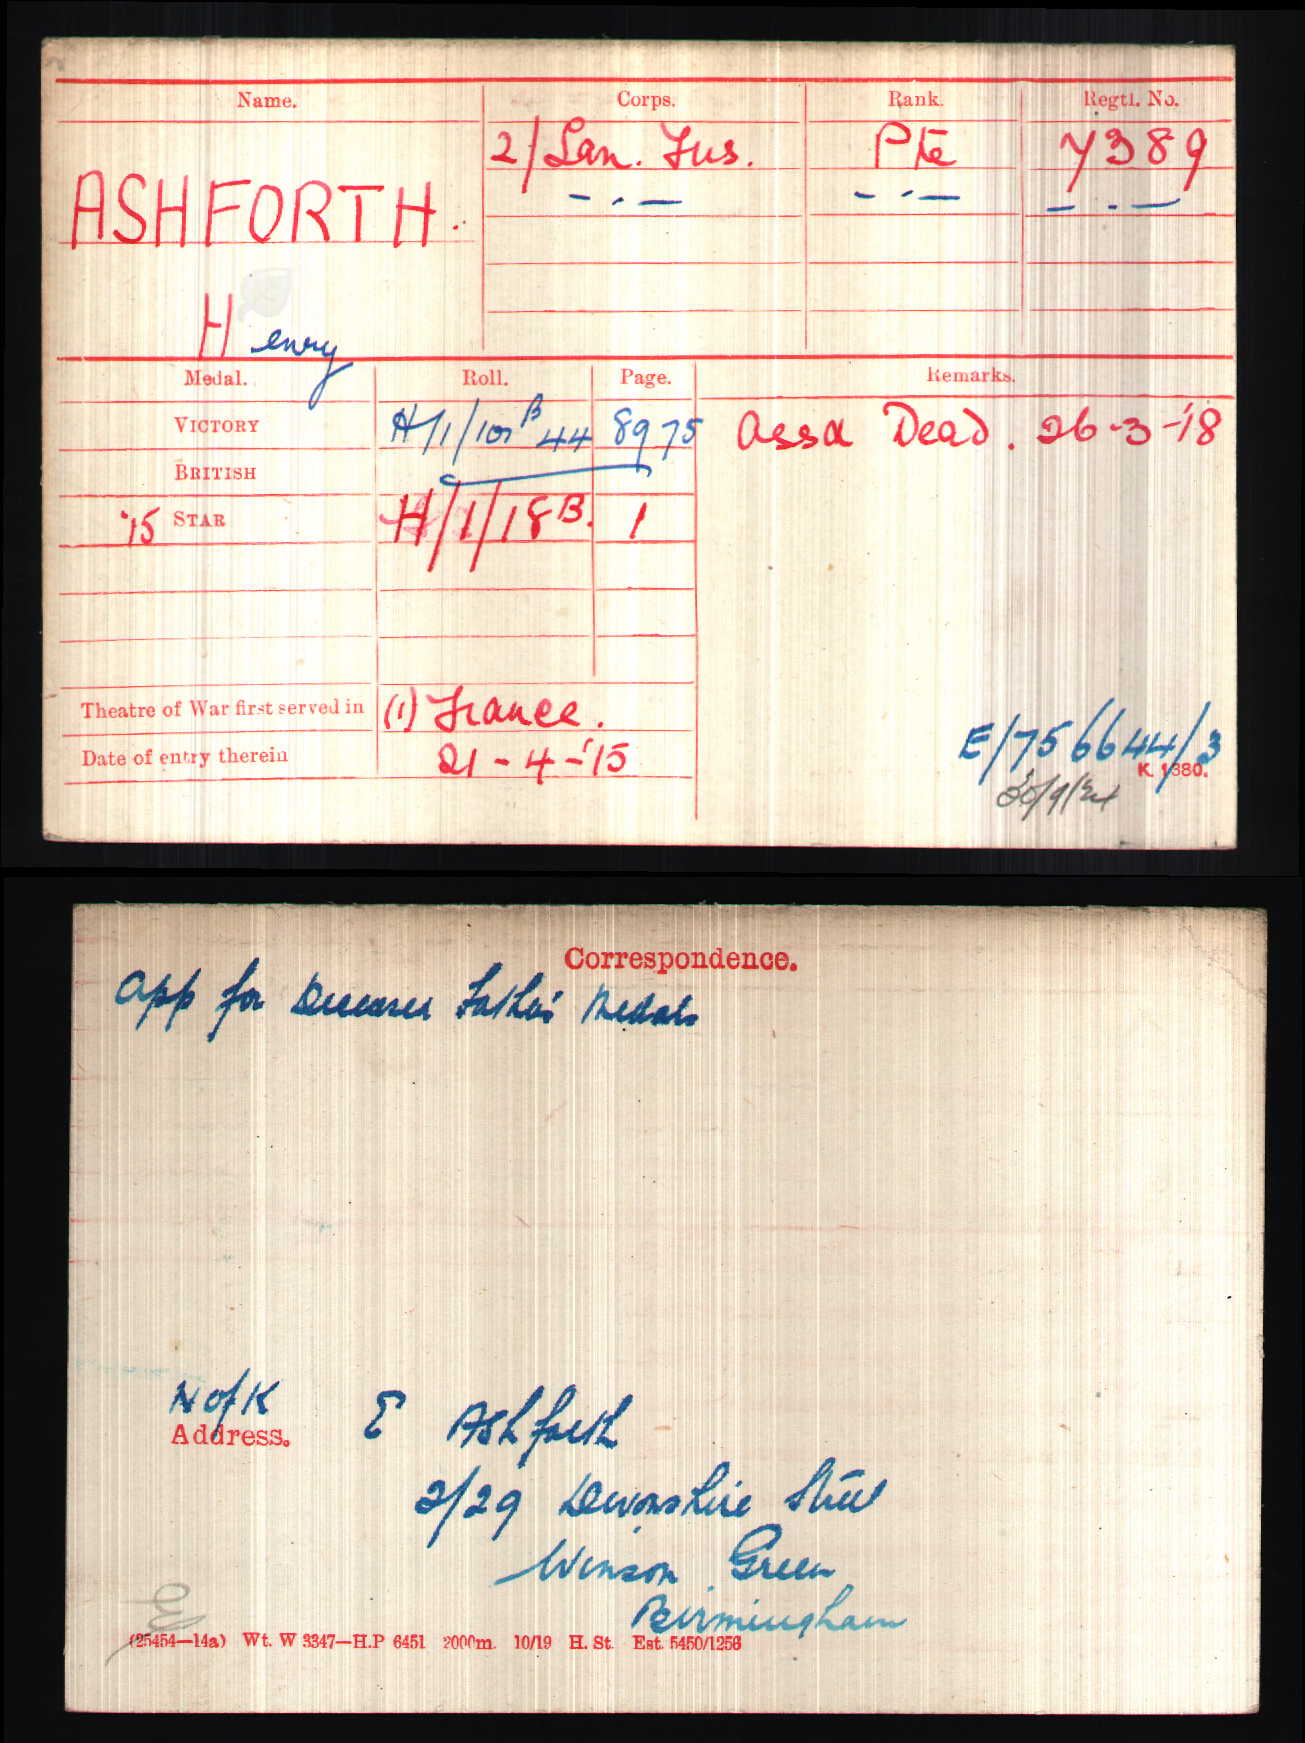 Name. Corps. Rank. Regtl. No.
2/Lan. Fus. Pte 7389
ASHFORTH. — . — — . — — . —
Henry
Medal. Roll. Page. Remarks.
VICTORY H/1/101 B 44 8975 Assd Dead. 26-3-'18
BRITISH
'15 STAR H/1/18B. 1
Theatre of War first served in (1) France.
Date of entry therein 21-4-'15
E/756644/3
K. 1380.
Correspondence.
App for Deceased Father's Medals
N of K
Address. E Ashforth
2/29 Devonshire Street
Winson Green
Birmingham
(25454—14a) Wt. W 3347—H.P 6451 2000m. 10/19 H. St. Est. 5450/1256